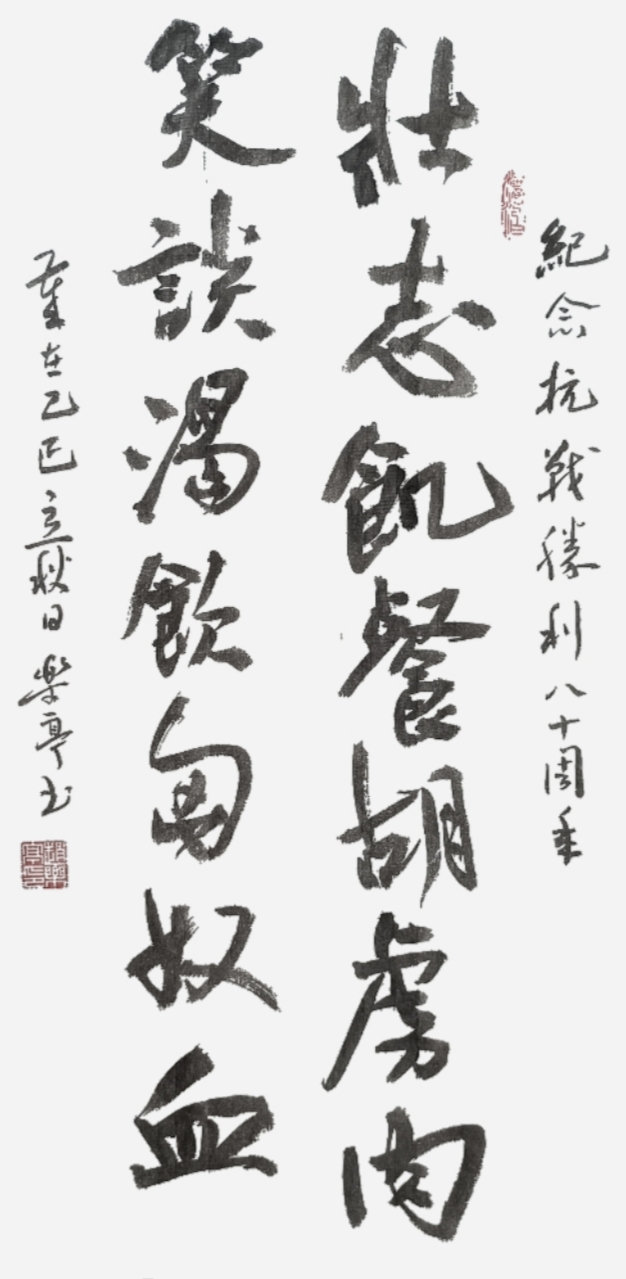 紀念抗戰勝利八十周年
壯志飢餐胡虜肉
笑談渴飲匈奴血
歲在乙巳立秋日樂亭书